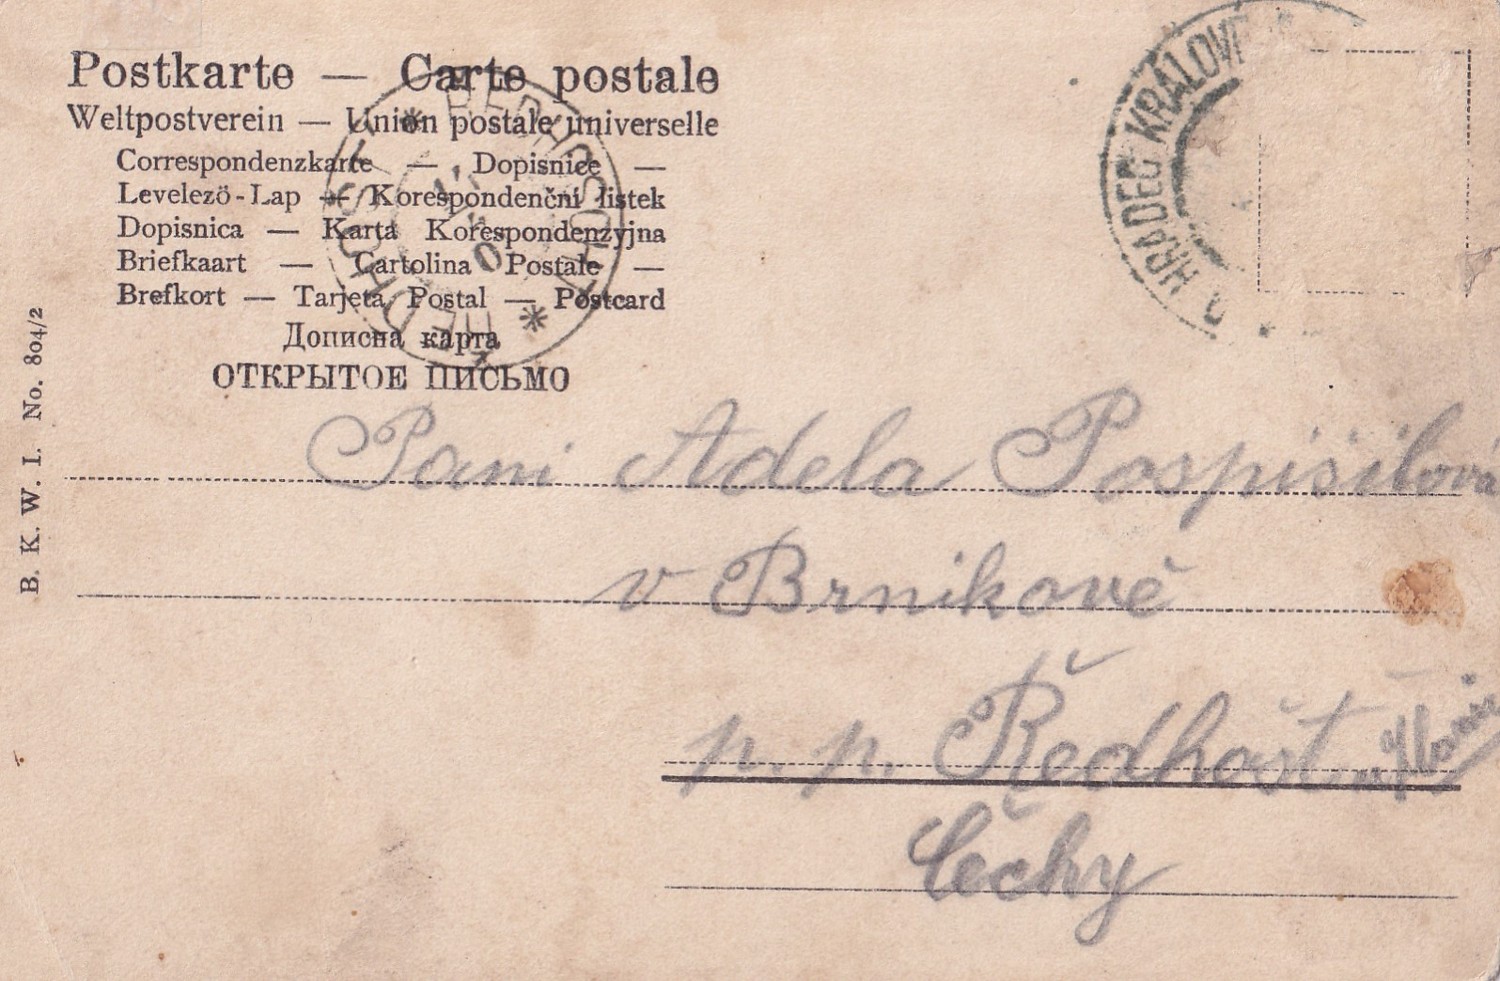 Postkarte — Carte postale
Weltpostverein — Union postale universelle
Correspondenzkarte — Dopisnice —
Levelező-Lap — Korespondenční lístek
Dopisnica — Karta Korespondenzyjna
Briefkaart — Cartolina Postale —
Brefkort — Tarjeta Postal — Postcard
Дописна карта
ОТКРЫТОЕ ПИСЬМО
HRADEC KRÁLOVÉ
B. K. W. I. No. 804/2
Paní Adela Pospíšilová
v Brnikově
p. p. Ředhošt
Čechy